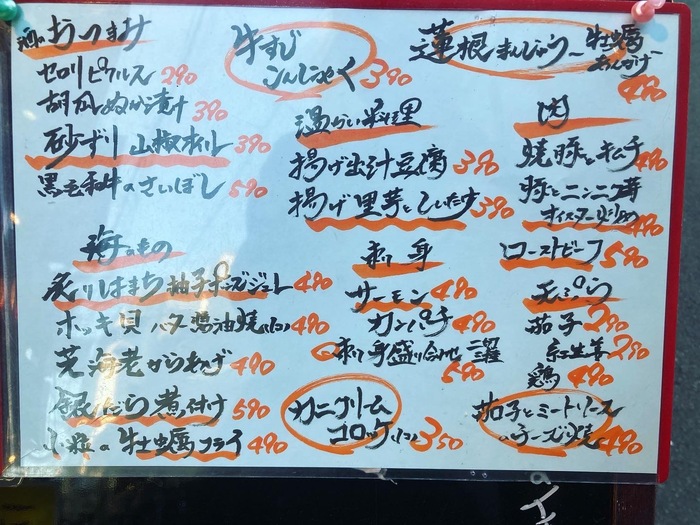 酒のおつまみ
セロリピクルス 290
胡瓜ぬか漬け 390
砂ずり山椒オイル 390
黒毛和牛のさいぼし 590
牛すじ
こんにゃく 390
蓮根まんじゅう〜牡蠣
あんかけ 490
温かい料理
揚げ出汁豆腐 390
揚げ里芋としいたけ 390
肉
焼豚とキムチ 490
豚とニンニク芽
オイスター炒め 490
ローストビーフ 590
海のもの
炙りはまち柚子ポン酢ジュレ 490
ホッキ貝バター醤油焼(1コ) 490
芝海老からあげ 490
銀だら煮付け 590
小粒の牡蠣フライ 490
刺身
サーモン 490
カンパチ 490
刺身盛り合せ 三種
590
カニクリーム
コロッケ(1コ) 350
天ぷら
茄子 290
紅生姜 290
鶏 490
茄子とミートソース
のチーズ焼 490